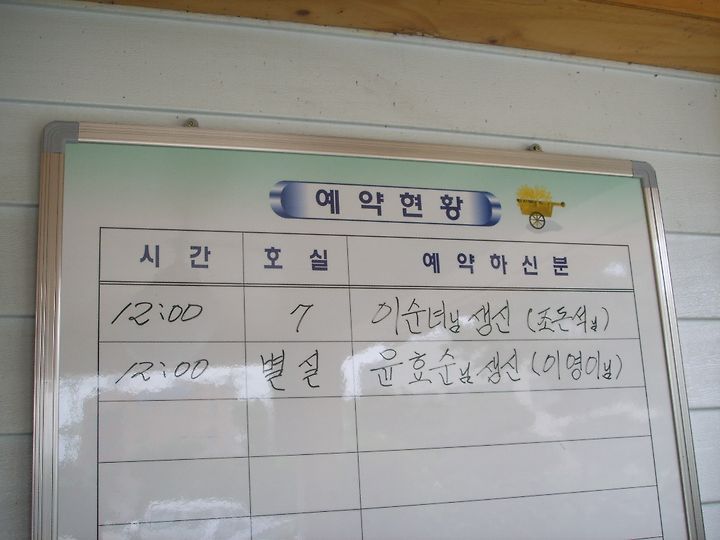 예약현황
시간 호실 예약하신분
12:00 7 이순녀님 생신 (조돈석님)
12:00 별실 윤효순님 생신 (이영이님)